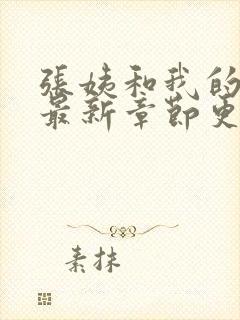 張姨和我的
最新章節更
素抹